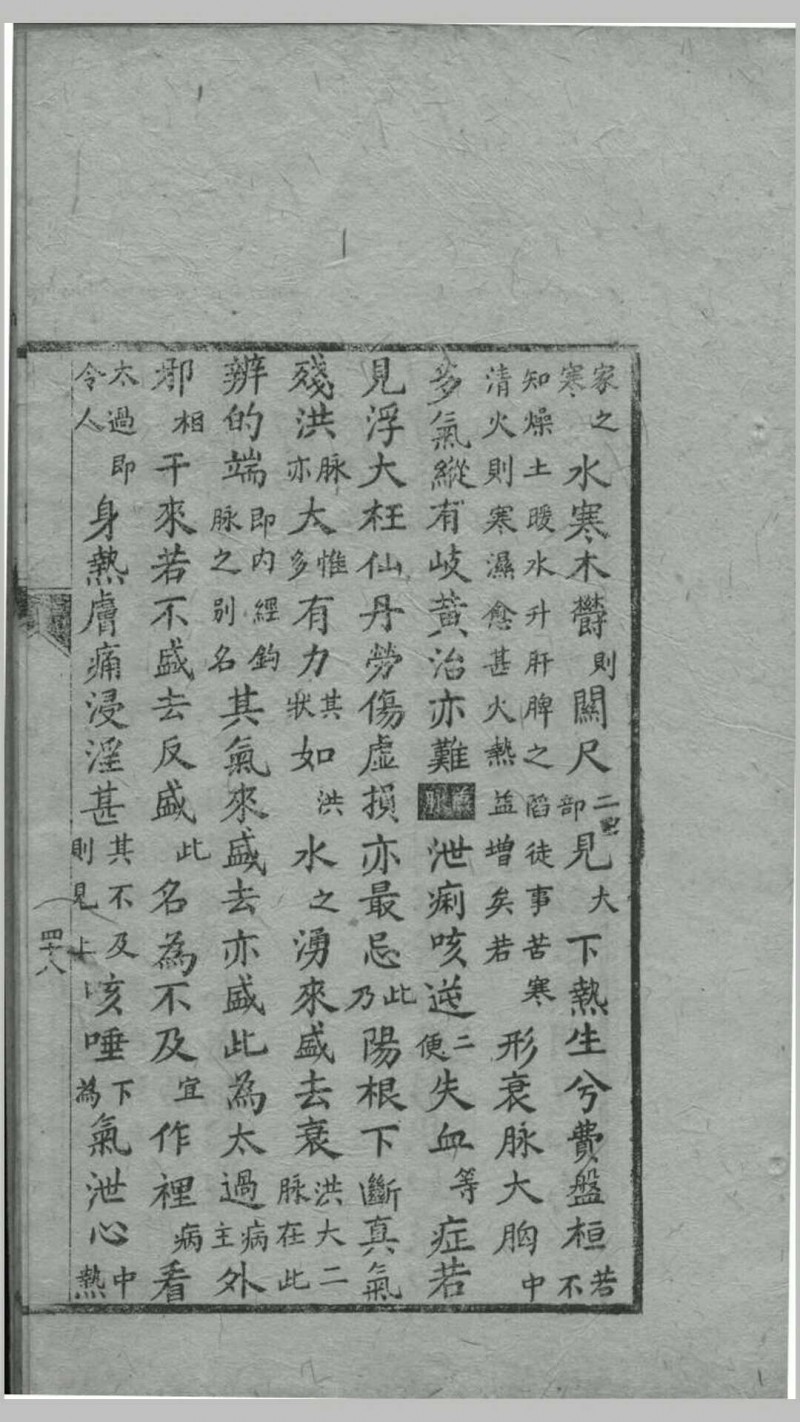 家之寒水寒木欝則關尺二部見大下熱生兮費盤桓若不
知燥土暖水升肝脾之陷徒事苦寒清火則寒濕愈甚火熱益增矣若形衰脉大胸中
多氣縱有岐黄治亦難泄痢咳逆二便失血等症若
見浮大枉仙丹勞傷虛損亦最忌此乃陽根下斷真氣
殘洪脉亦大惟多有力其狀如洪水之湧來盛去衰洪大二脉在此
辨的端即内經鈎脉之別名其氣來盛去亦盛此為太過病主外
邪相干來若不盛去反盛此名為不及宜作裡病看
太過即令人身熱膚痛浸淫甚其不及則見上咳唾下為氣泄心中熱
四十八